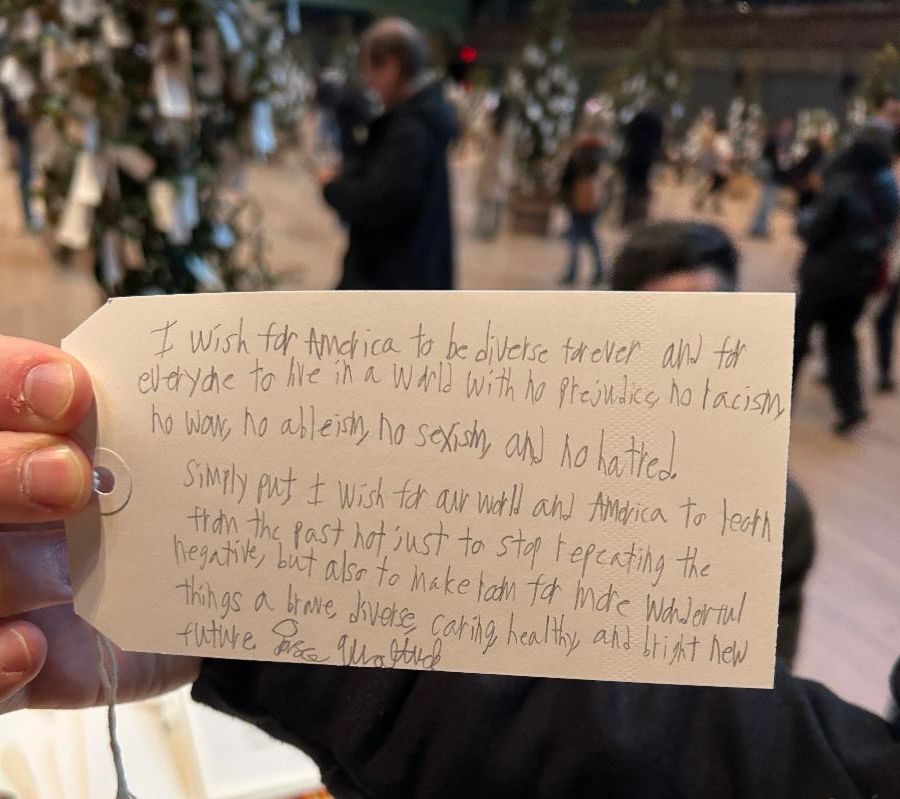 I wish for America to be diverse forever and for
everyone to live in a world with no prejudice, no racism,
no war, no ableism, no sexism, and no hatred.
Simply put I wish for our world and America to learn
from the past not just to stop repeating the
negative, but also to make room for more wonderful
things a brave, diverse, caring, healthy, and bright new
future.